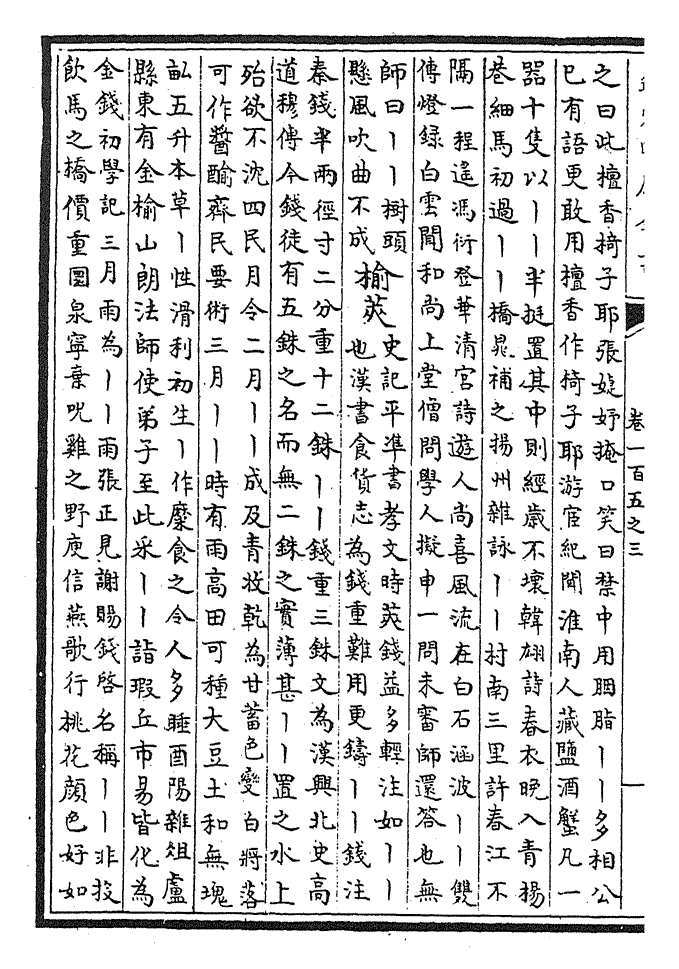 卷一百五之三
一
之曰此檀香椅子耶張婕妤掩口笑曰禁中用胭脂丨丨多相公
已有語更敢用檀香作椅子耶游宦紀聞淮南人藏鹽酒蟹凡一
器十隻以丨丨半挺置其中則經歲不壞韓翃詩春衣晚入青楊
巷細馬初過丨丨橋晁補之揚州雜詠丨丨村南三里許春江不
隔一程遙馮衍登華清宮詩遊人尚喜風流在白石涵波丨丨雙
傳燈錄白雲聞和尚上堂僧問學人擬申一問未審師還答也無
師曰丨丨樹頭
懸風吹曲不成
榆莢
史記平準書孝文時莢錢益多輕注如丨丨
也漢書食貨志為錢重難用更鑄丨丨錢注
秦錢半兩徑寸二分重十二銖丨丨錢重三銖文為漢興北史高
道穆傳今錢徒有五銖之名而無二銖之實薄甚丨丨置之水上
殆欲不沈四民月令二月丨丨成及青收乾為甘蓄色變白將落
可作醬䤅齊民要術三月丨丨時有雨高田可種大豆土和無塊
畝五升本草丨性滑利初生丨作糜食之令人多睡酉陽雜俎盧
縣東有金榆山朗法師使弟子至此采丨丨詣瑕丘市易皆化為
金錢初學記三月雨為丨丨雨張正見謝賜錢啓名稱丨丨非投
飲馬之橋價重圜泉寧棄呪雞之野庾信燕歌行桃花顏色好如